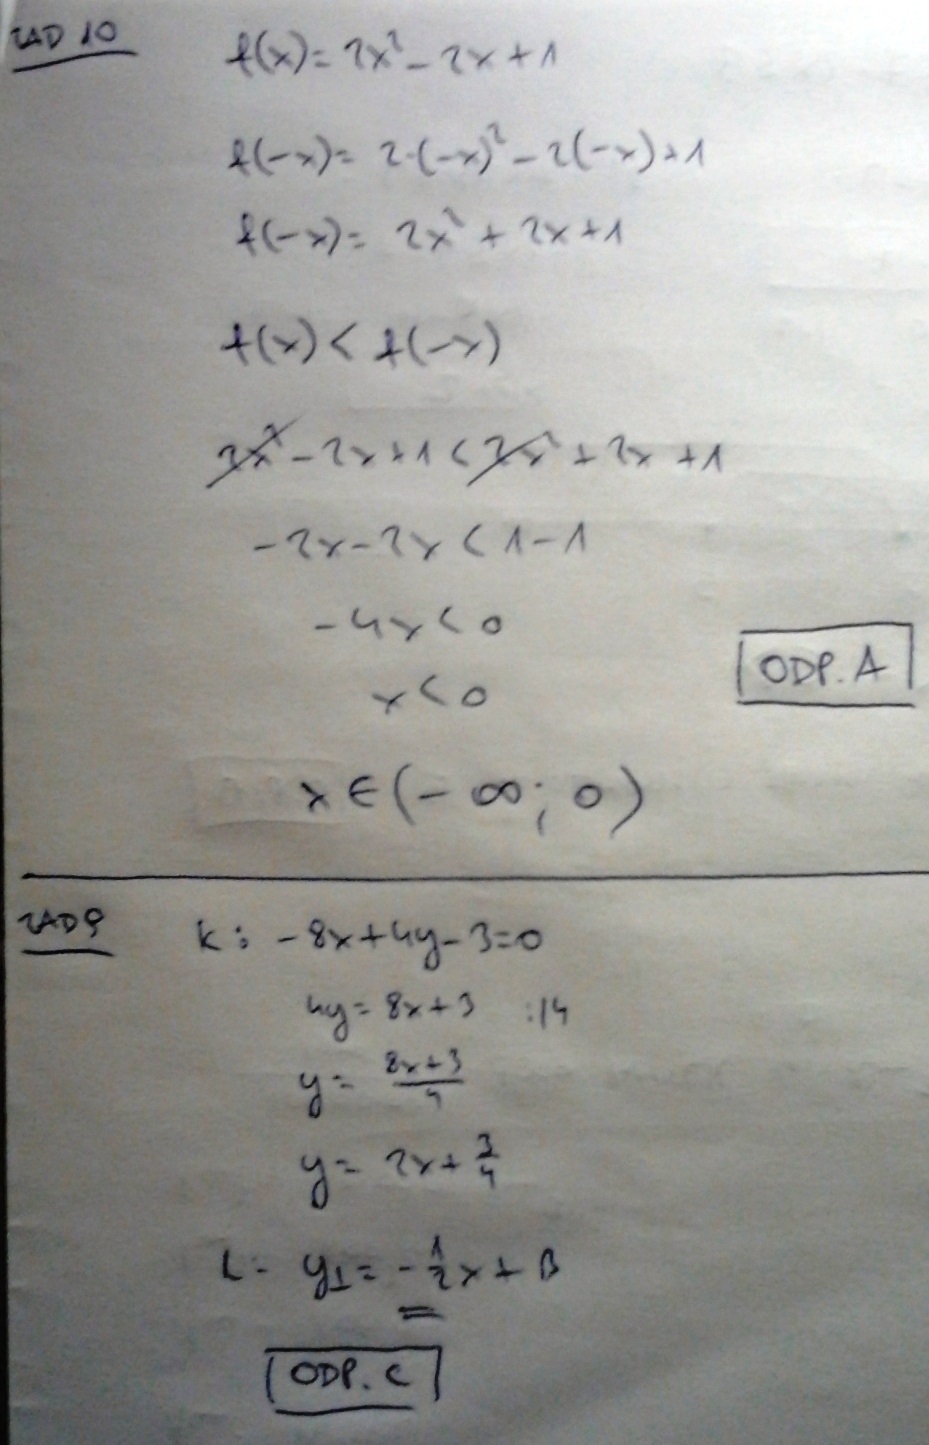 ZAD 10
f(x) = 2x² - 2x + 1
f(-x) = 2·(-x)² - 2(-x) + 1
f(-x) = 2x² + 2x + 1
f(x) < f(-x)
2x² - 2x + 1 < 2x² + 2x + 1
-2x - 2x < 1 - 1
-4x < 0
ODP. A
x < 0
x ∈ (-∞; 0)
ZAD 9
k: -8x + 4y - 3 = 0
4y = 8x + 3 :/4
y = (8x + 3)/4
y = 2x + 3/4
L - y⊥ = -1/2 x + B
ODP. C